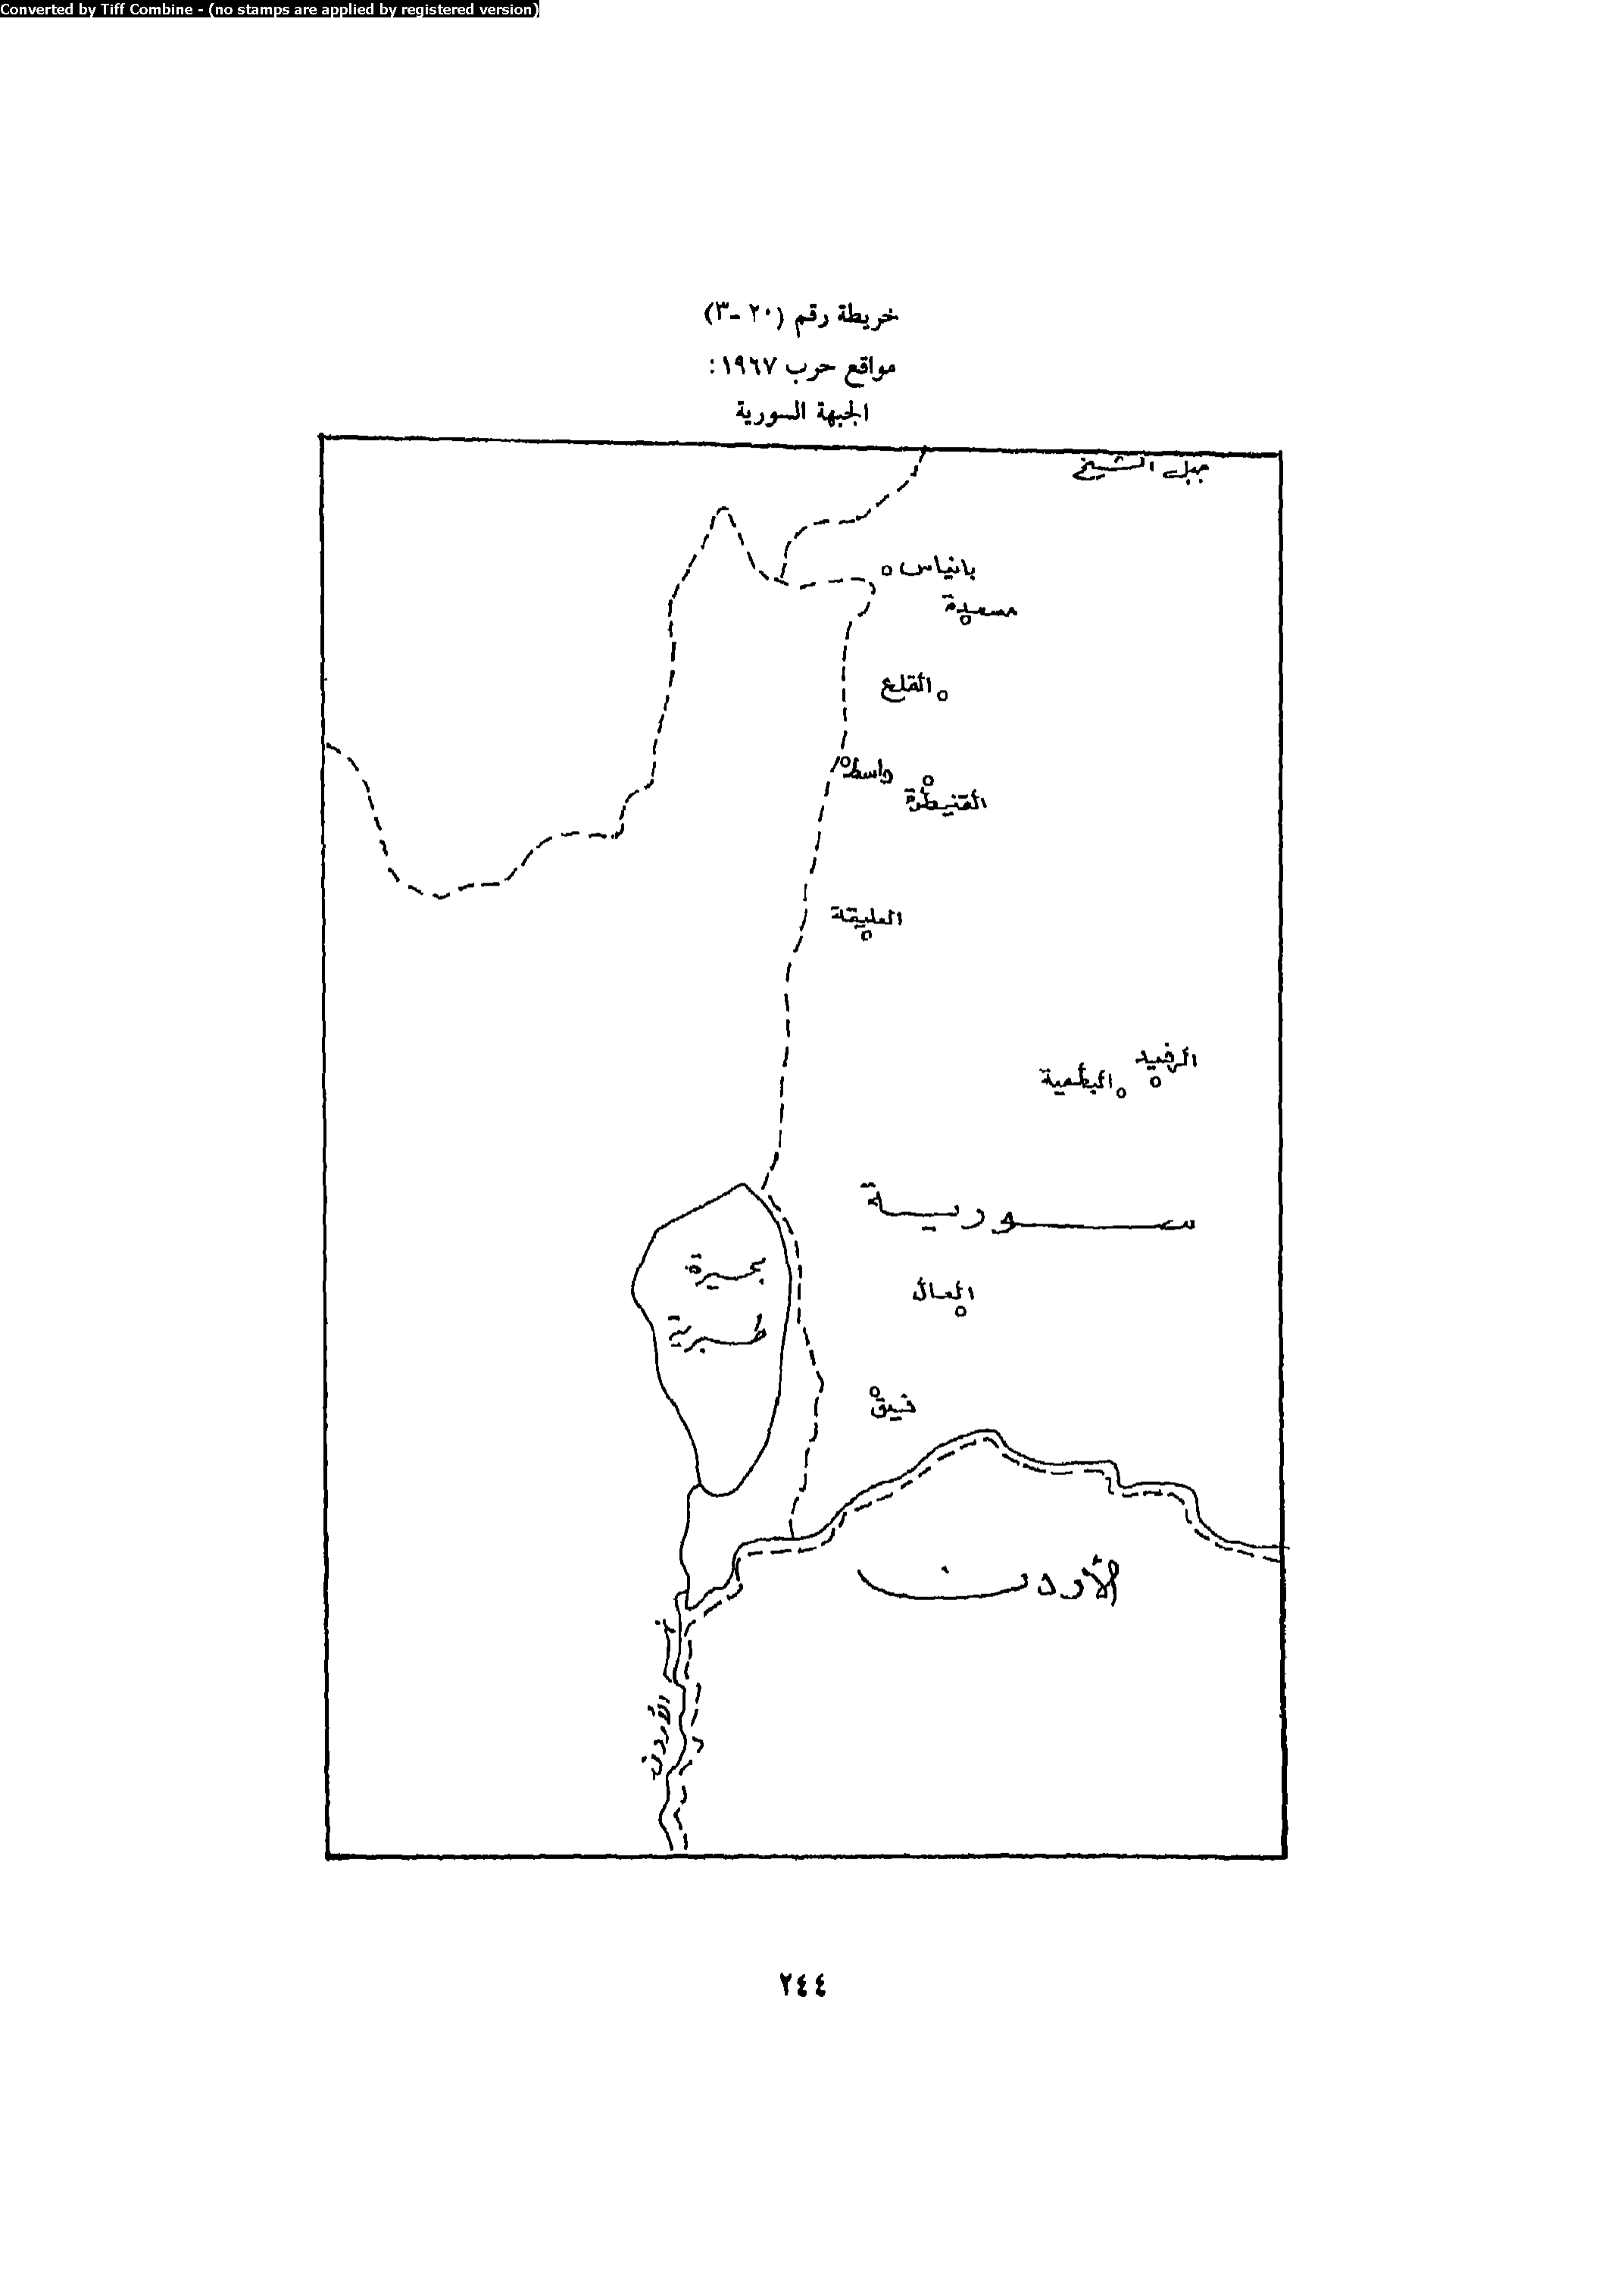 Converted by Tiff Combine - (no stamps are applied by registered version)
خريطة رقم (٢٠ -٣)
مواقع حرب ١٩٦٧:
الجبهة السورية
جبل الشيخ
بانياس
مسعدة
القلع
واسط
القنيطرة
العليقة
الرفيد
البطمية
سورية
بحيرة
طبرية
العال
فيق
الأردن
نهر الأردن
٢٤٤